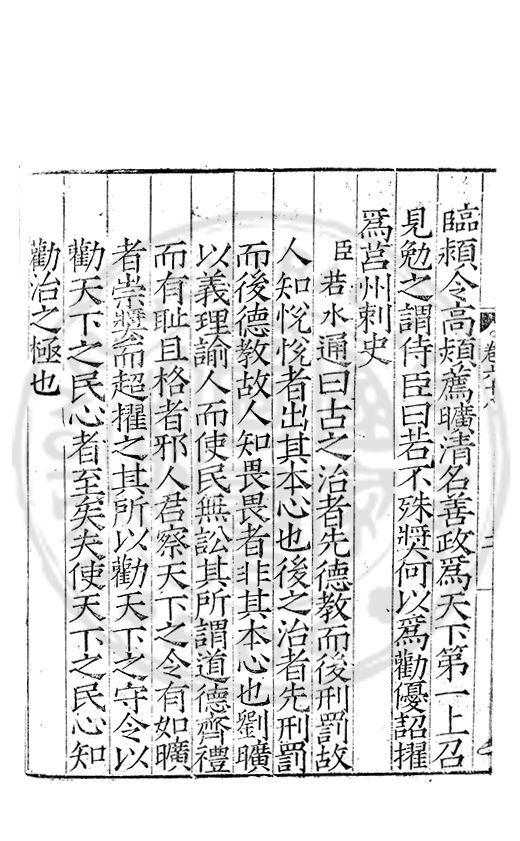 臨潁令高熲薦曠清名善政爲天下第一上召
見勉之謂侍臣曰若不殊奬何以爲勸優詔擢
爲莒州刺史
臣若水通曰古之治者先德教而後刑罰故
人知悅悅者出其本心也後之治者先刑罰
而後德教故人知畏畏者非其本心也劉曠
以義理諭人而使民無訟其所謂道德齊禮
而有耻且格者邪人君察天下之令有如曠
者崇奬而超擢之其所以勸天下之守令以
勸天下之民心者至矣夫使天下之民心知
勸治之極也
卷六十八